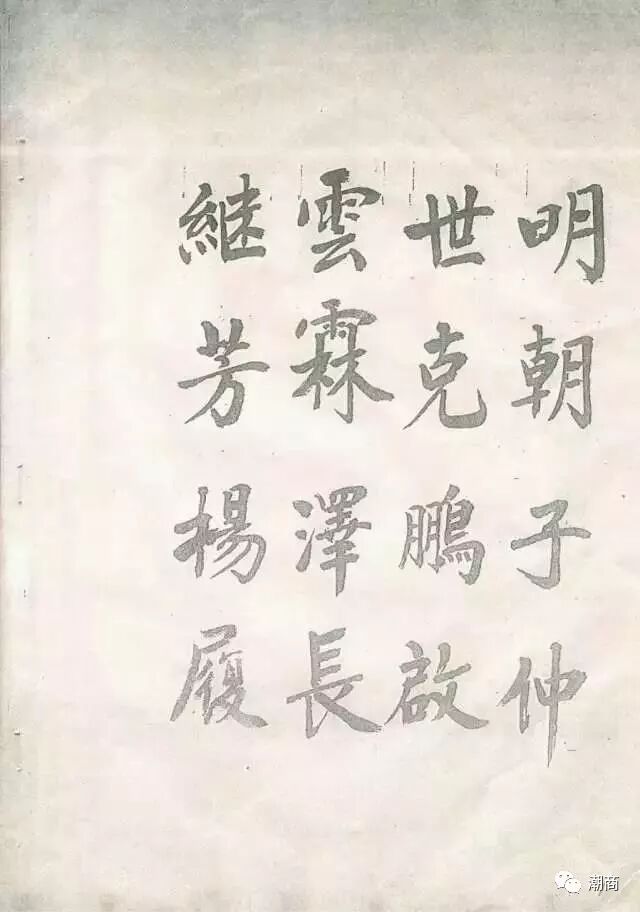 明朝子仲
世克鵬啟
雲霖澤長
継芳楊履
潮商